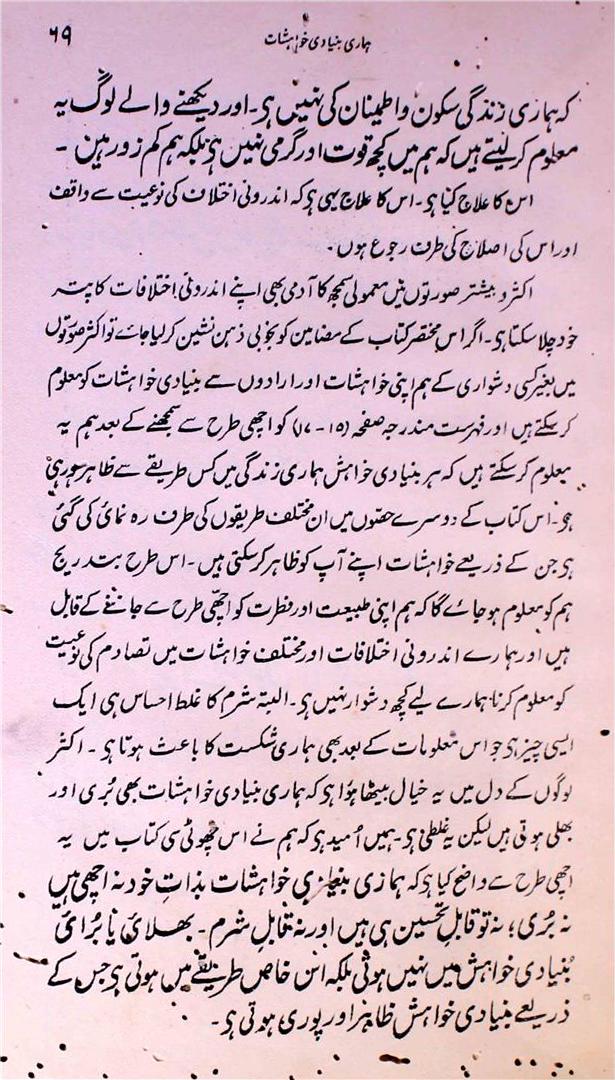 ہماری بنیادی خواہشات ۶۹
کہ ہماری زندگی سکون و اطینان کی نہیں ہو۔ اور دیکھنے والے لوگ یہ
معلوم کر لیتے ہیں کہ ہم میں کچھ قوت اور گرمی نہیں ہو بلکہ ہم کم زور ہیں ۔
اس کا علاج کیا ہو۔ اس کا علاج یہی ہو کہ اندرونی اختلاف کی نوعیت سے واقف
اور اس کی اصلاح کی طرف رجوع ہوں۔
اکثر و بیشتر صورتوں میں معمولی سمجھ کا آدمی بھی اپنے اندرونی اختلافات کا پتہ
خود چلا سکتا ہو۔ اگر اس مختصر کتاب کے مضامین کو بخوبی ذہن نشین کر لیا جائے تو اکثر صورتوں
میں بغیر کسی دشواری کے ہم اپنی خواہشات اور ارادوں سے بنیادی خواہشات کو معلوم
کر سکتے ہیں اور فہرست مندرجہ صفحہ (۱۵ - ۱۷) کو اچھی طرح سے سمجھنے کے بعد ہم یہ
معلوم کر سکتے ہیں کہ ہر بنیادی خواہش ہماری زندگی میں کس طریقے سے ظاہر ہو رہی
ہو۔ اس کتاب کے دوسرے حصّوں میں ان مختلف طریقوں کی طرف رہ نمائی کی گئی
ہو جن کے ذریعے خواہشات اپنے آپ کو ظاہر کر سکتی ہیں۔ اس طرح بتدریج
ہم کو معلوم ہو جائے گا کہ ہم اپنی طبیعت اور فطرت کو اچھی طرح سے جاننے کے قابل
ہیں اور ہمارے اندرونی اختلافات اور مختلف خواہشات میں تصادم کی نوعیت
کو معلوم کرنا ہمارے لیے کچھ دشوار نہیں ہو۔ البتہ شرم کا غلط احساس ہی ایک
ایسی چیز ہو جو اس معلومات کے بعد بھی ہماری شکست کا باعث ہوتا ہو ۔ اکثر
لوگوں کے دل میں یہ خیال بیٹھا ہوا ہو کہ ہماری بنیادی خواہشات بھی بُری اور
بھلی ہوتی ہیں لیکن یہ غلطی ہو۔ ہمیں اُمید ہو کہ ہم نے اس چھوٹی سی کتاب میں یہ
اچھی طرح سے واضح کیا ہو کہ ہماری بنیادی خواہشات بذاتِ خود نہ اچھی ہیں
نہ بُری؛ نہ تو قابلِ تحسین ہی ہیں اور نہ قابلِ شرم۔ بھلائی یا بُرائی
بُنیادی خواہش میں نہیں ہوتی بلکہ اس خاص طریقے میں ہوتی ہو جس کے
ذریعے بنیادی خواہش ظاہر اور پوری ہوتی ہو۔